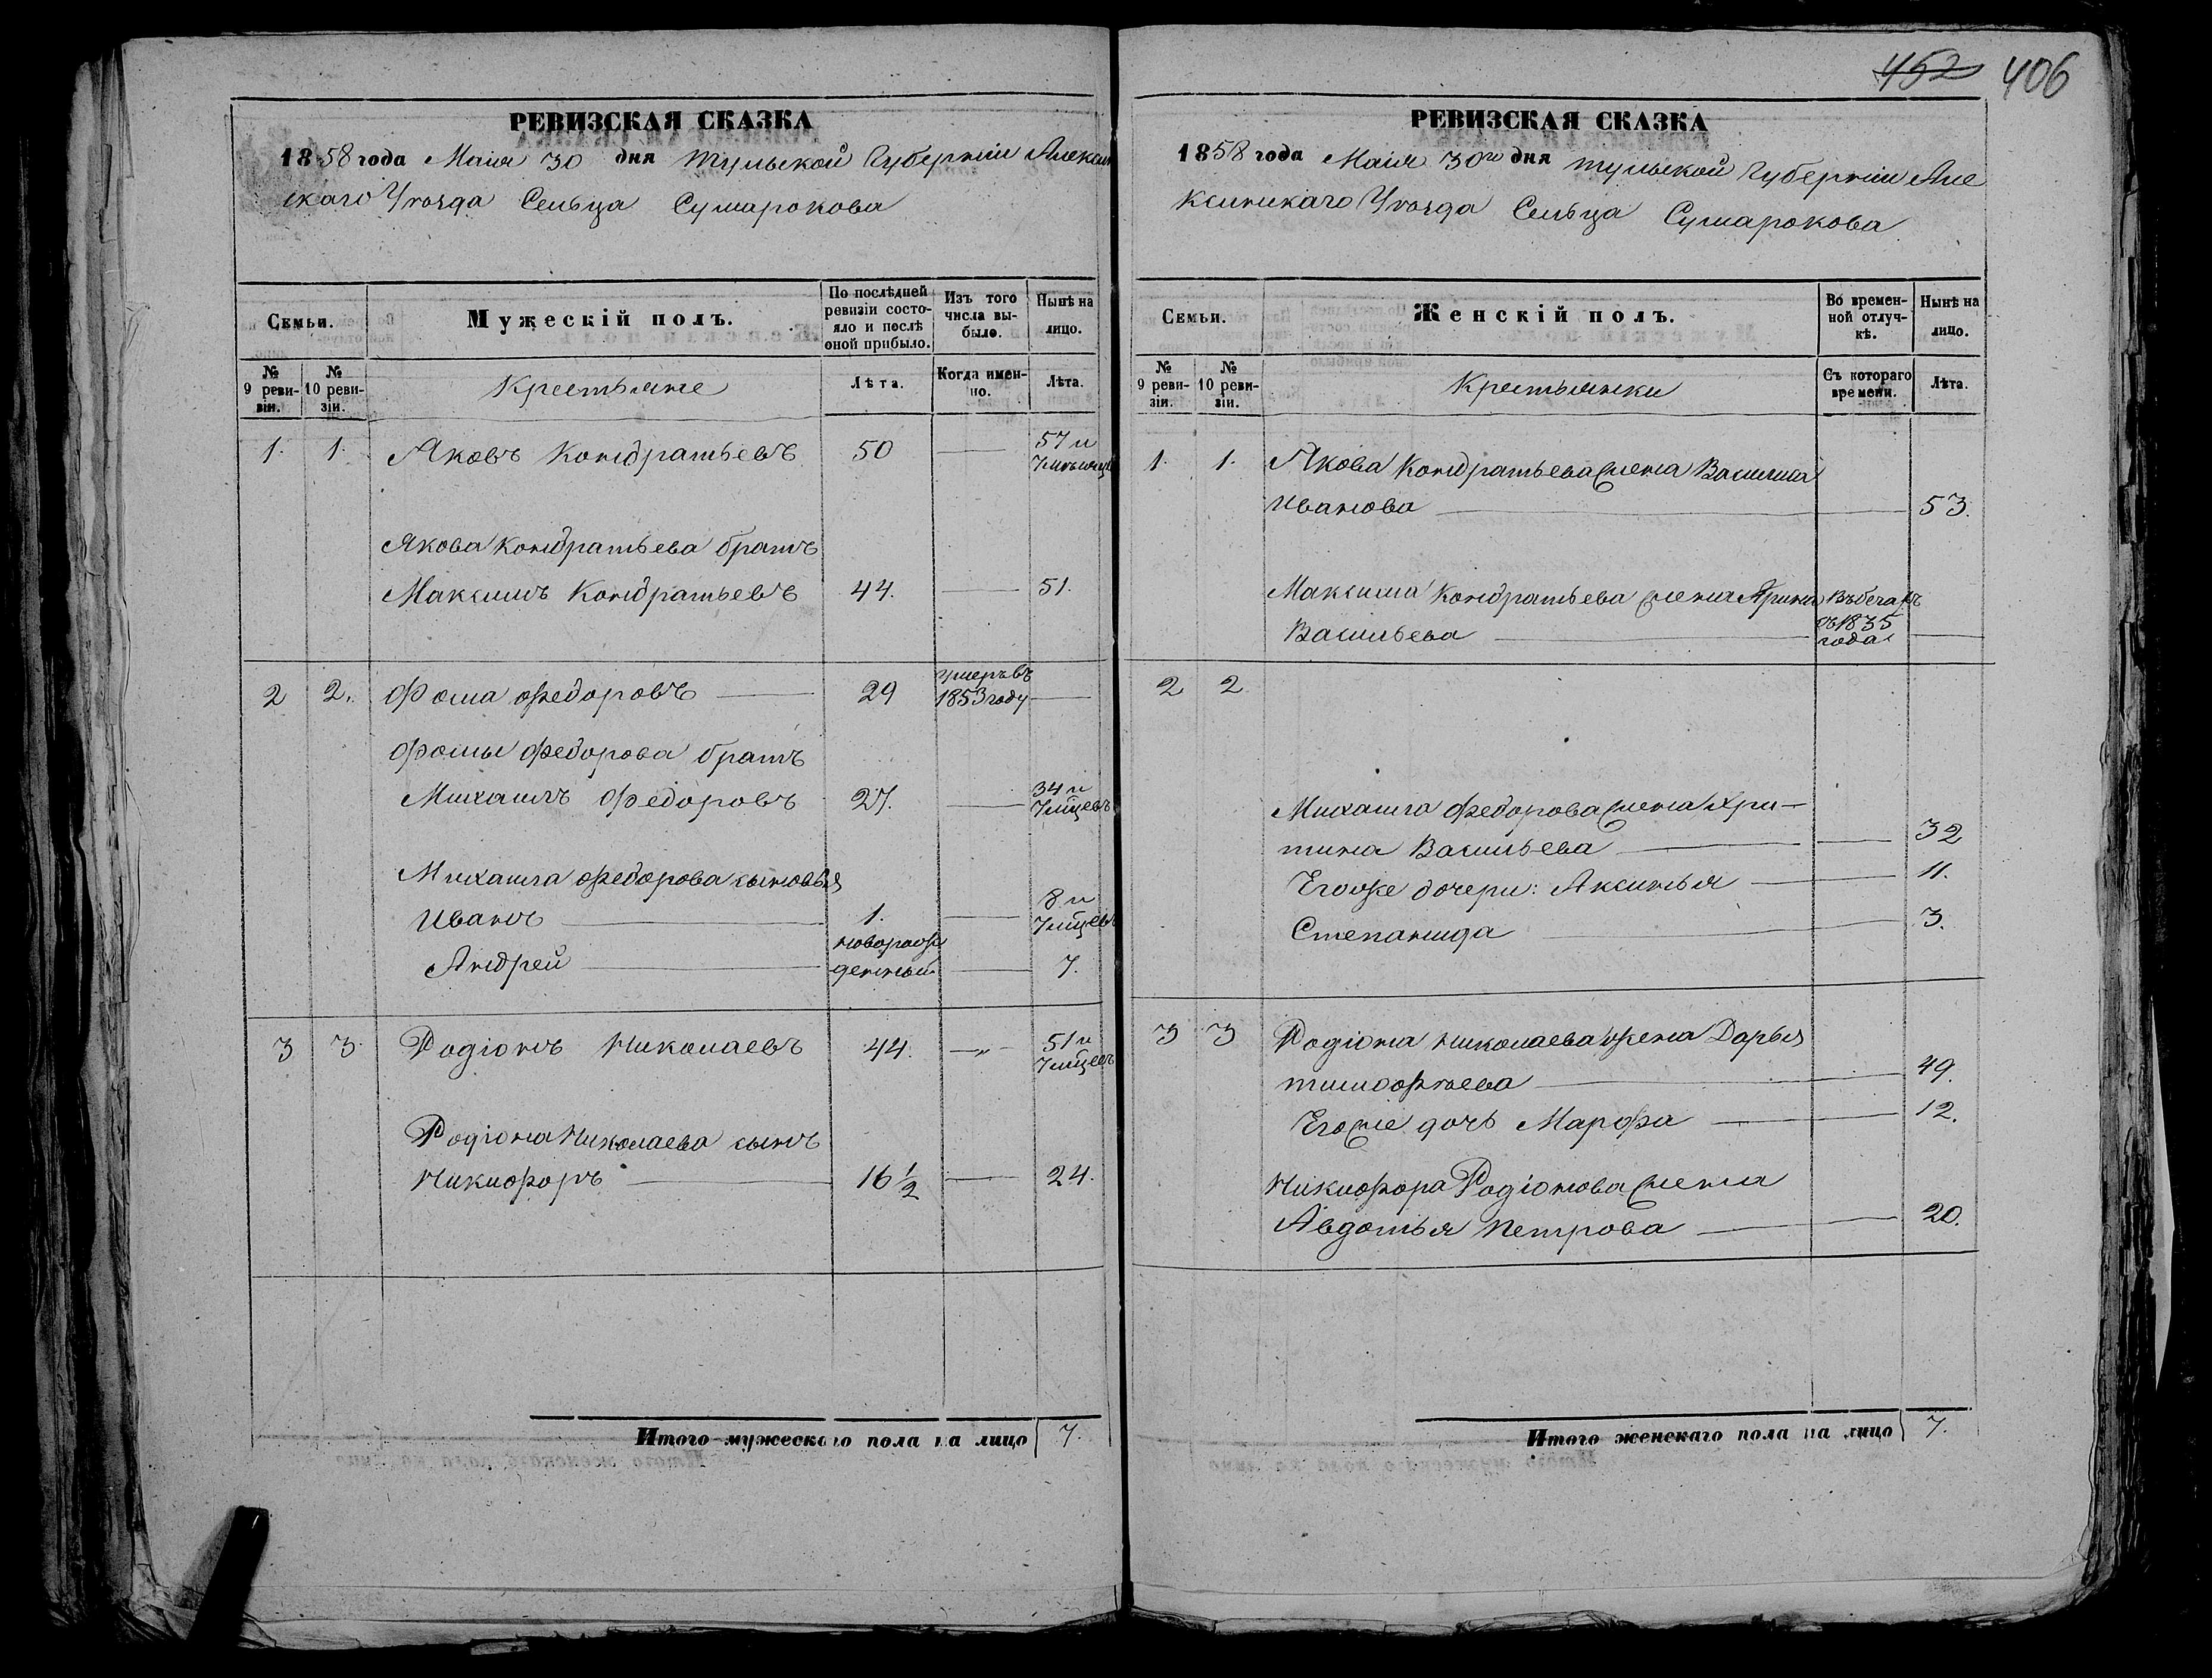 452 406
РЕВИЗСКАЯ СКАЗКА
1858 года Маія 30 дня Тульской Губерніи Алексин
скаго Уѣзда Сельца Сумарокова
Семьи.
Мужескій полъ.
По послѣдней ревизіи состояло и послѣ оной прибыло.
Изъ того числа выбыло.
Нынѣ на лицо.
№ 9 ревизіи.
№ 10 ревизіи.
Крестьяне
Лѣта.
Когда именно.
Лѣта.
1. 1. Яковъ Кондратьевъ 50 — 57 и
Якова Кондратьева братъ
Максимъ Кондратьевъ 44. — 51.
2 2. Фома Федоровъ — 29 умеръ въ 1853 году —
Фомы Федорова братъ
Михаилъ Федоровъ 27. — 34 и 7 мѣцевъ
Михаила Федорова сыновья
Иванъ — 1. — 8 и 7 мѣцевъ
Андрей — новорожденный — 7.
3 3. Родіонъ Николаевъ 44. —„— 51 и 7 мѣцевъ
Родіона Николаева сынъ
Никифоръ — 16 1/2 — 24.
Итого мужескаго пола на лицо 7.
РЕВИЗСКАЯ СКАЗКА
1858 года Маія 30го дня Тульской Губерніи Але
ксинскаго Уѣзда Сельца Сумарокова
Семьи.
Женскій полъ.
Во временной отлучкѣ.
Нынѣ на лицо.
№ 9 ревизіи.
№ 10 ревизіи.
Крестьянки
Съ котораго времени.
Лѣта.
1. 1. Якова Кондратьева жена Василиса
Иванова — 53.
Максима Кондратьева жена Арина въ бегахъ
Васильева — съ 1835 года —
2 2
Михаила Федорова жена Хри-
тина Васильева — 32
Его же дочери: Аксинья — 11.
Степанида — 3.
3 3 Родіона Николаева жена Дарья
Тимофѣева — 49.
Его же дочь Марфа — 12.
Никифора Родіонова жена
Авдотья Петрова — 20.
Итого женскаго пола на лицо 7.